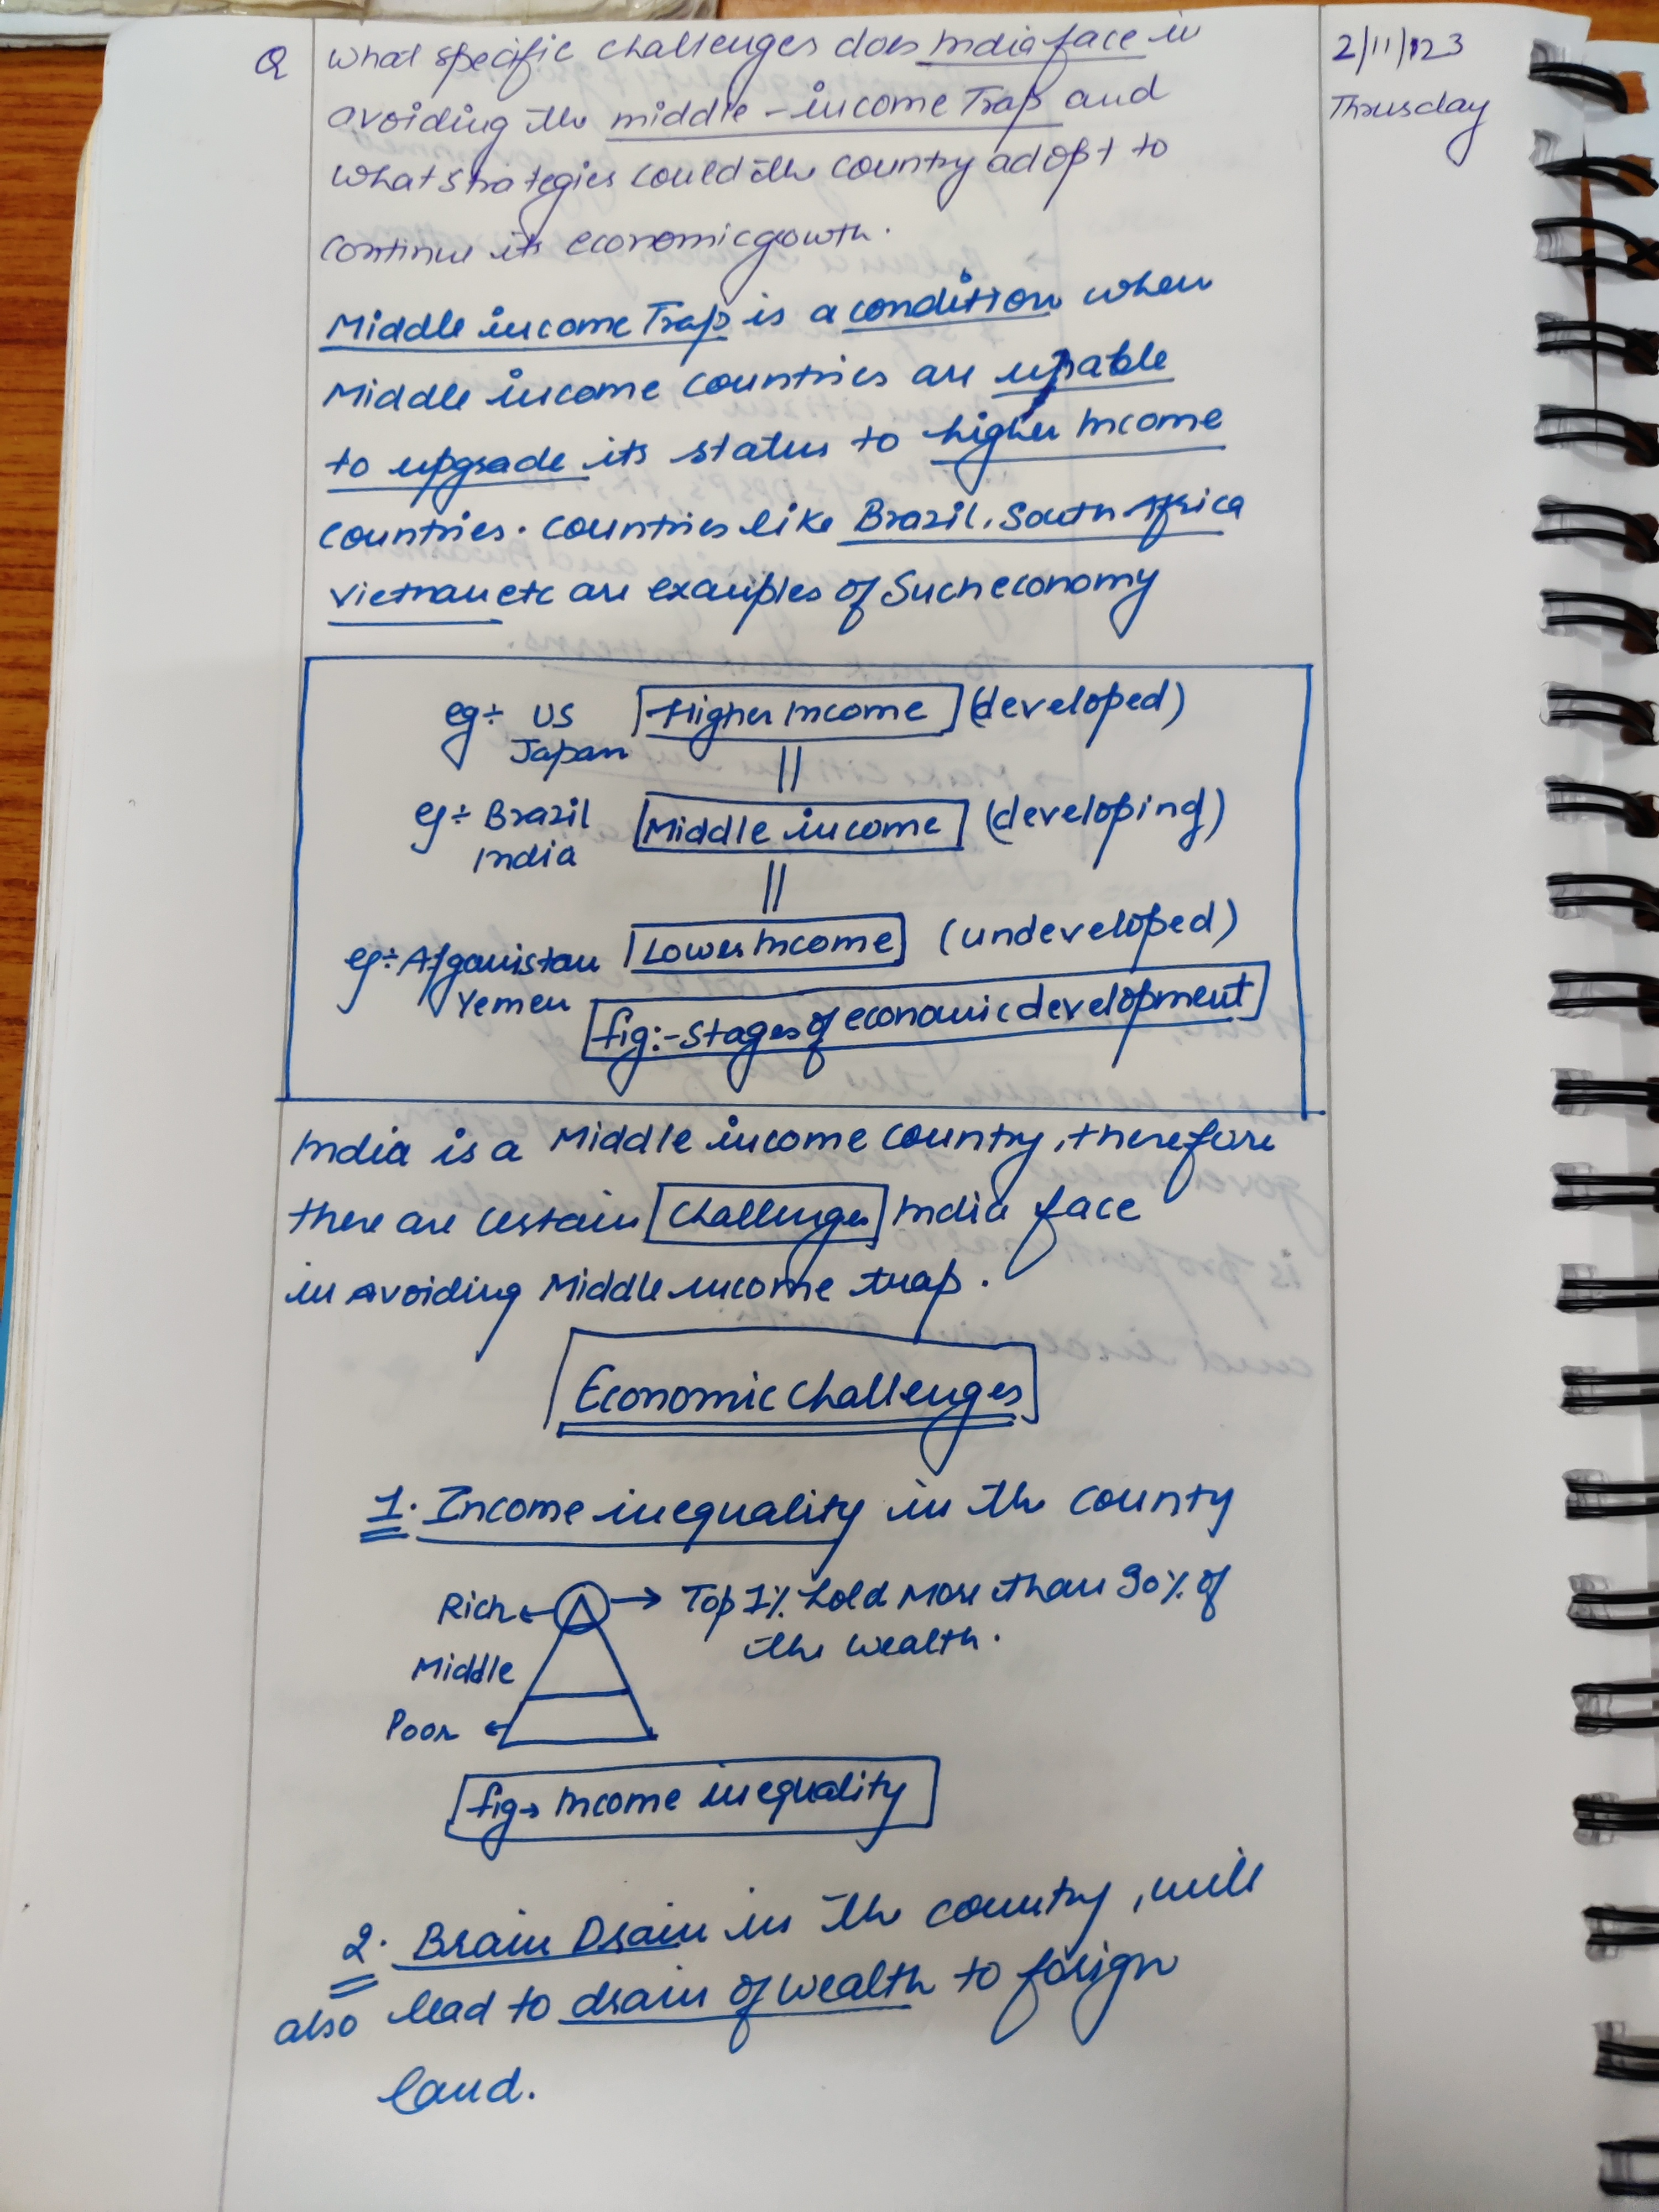 Q What specific challenges does India face in
avoiding the middle-income Trap and
what strategies could the country adopt to
continue its economic growth.
2/11/123
Thrusday
Middle income Trap is a condition when
Middle income countries are unable
to upgrade its status to higher Income
countries. Countries like Brazil, South Africa
Vietnam etc are examples of Such economy
eg÷ US Higher Income (developed)
Japan
eg÷ Brazil Middle income (developing)
India
eg÷ Afganistan Lower Income (undeveloped)
Yemen
fig:- Stages of economic development
India is a Middle income country, therefore
there are certain Challenges India face
in avoiding Middle income trap.
Economic Challenges
1. Income inequality in the county
Rich Top 1% hold More than 30% of
the wealth.
Middle
Poor
fig→ Income inequality
2. Brain Drain in the country, will
also lead to drain of wealth to forign
land.